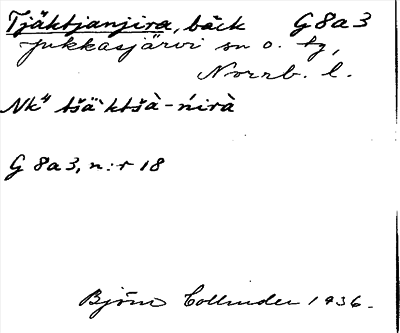 Tjäktjanjira, bäck G8a3
Jukkasjärvi sn o. tg,
Norrb. l.
Nk⁴ tšä`ktšà-ńirà
G 8a3, n:r 18
Björn Collinder 1936.